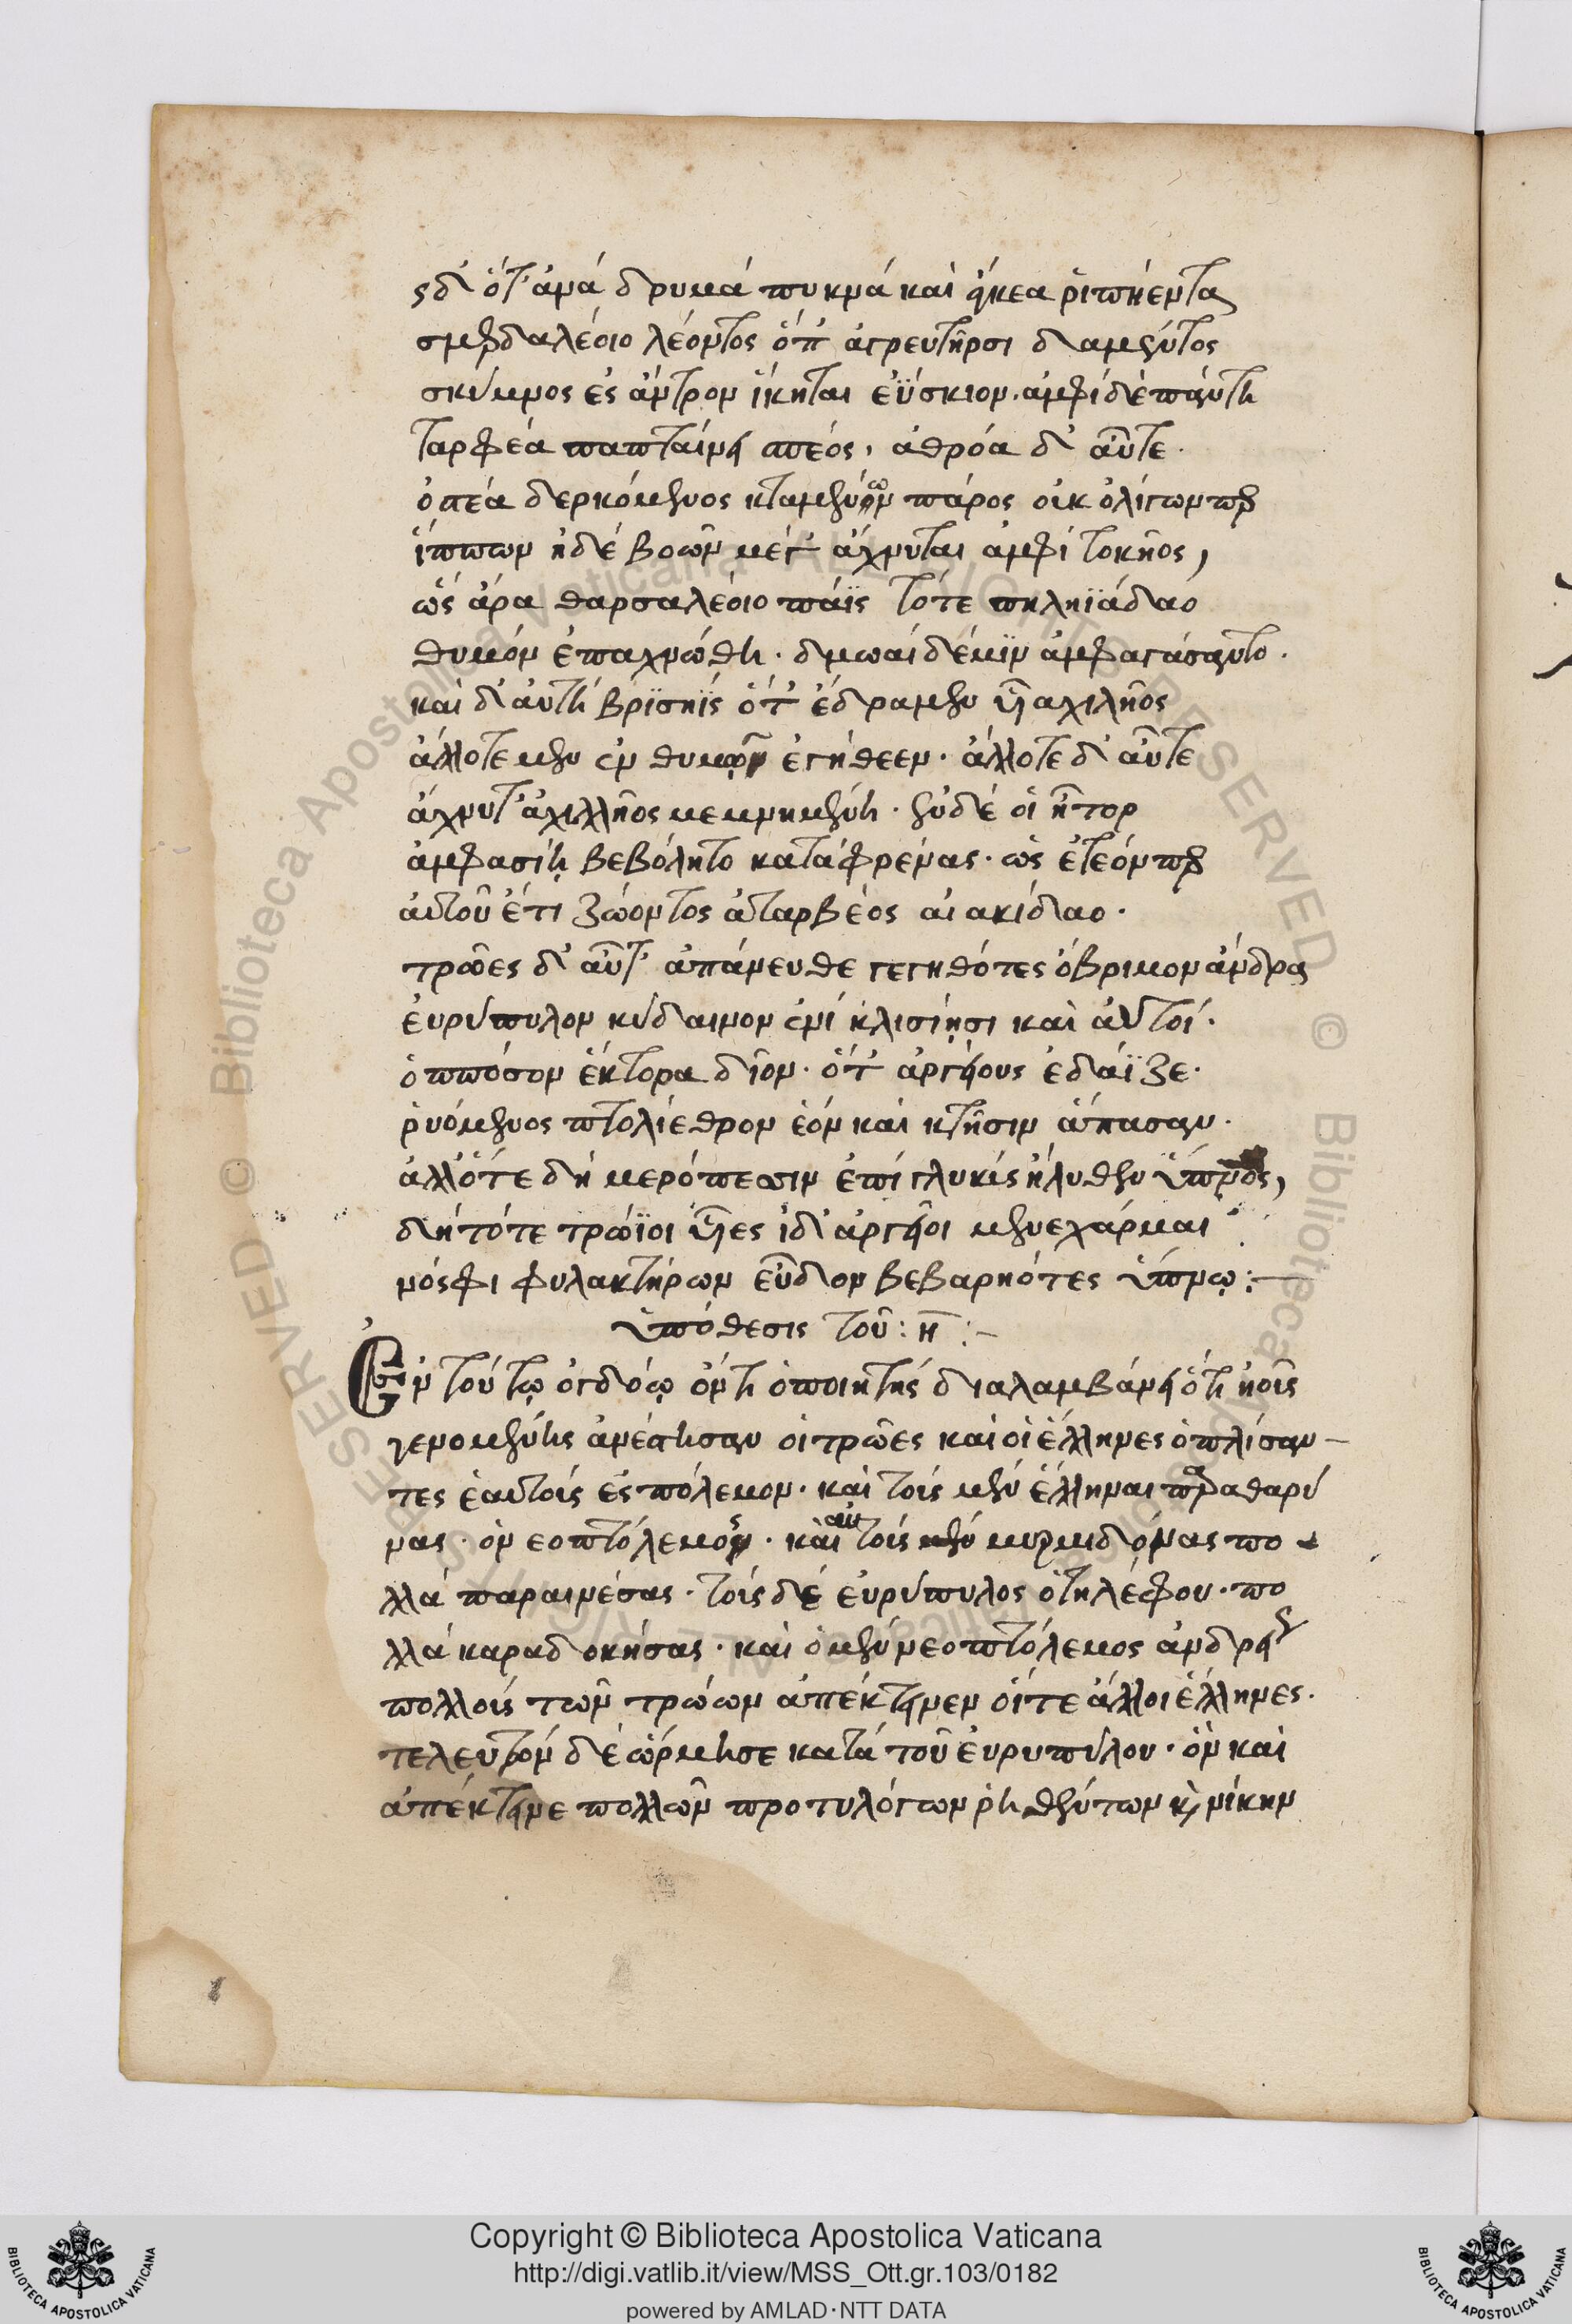 ς δ' ὅτ' ἀνά δρυμά πυκνά καὶ ἥκεα ῥιπήεντα
σμερδαλέοιο λέοντος ὅπ' ἀγρευτῆρσι δαμέντος
σκύμνος ἐς ἄντρον ἵκηται ἐΰσκιον. ἀμφὶ δὲ πάντη
ταρφέα παπταίνει σπέος, ἀθρόα δ' αὖτε.
ὀστέα δερκόμενος κταμένων πάρος οὐκ ὀλίγων περ
ἵππων ἠδὲ βοῶν μέγ' ἄχνυται ἀμφὶ τοκῆος,
ὣς ἄρα θαρσαλέοιο πάϊς τότε πηληϊάδαο
θυμόν ἐπαχνώθη. δμωαὶ δέ μϊν ἀμφαγάσαντο.
καὶ δ' αὐτή βρϊσηΐς ὅτ' ἔδραμεν υἷ αχιλῆος
ἄλλοτε μὲν ἐν θυμῷ ἐγήθεεν. ἄλλοτε δ' αὖτε
ἄχνυτ' ἀχιλλῆος μεμνημένη. ἐν δέ οἱ ἦτορ
ἀμφασίῃ βεβόλητο κατά φρένας. ὡς ἐτεόν περ
αὐτοῦ ἔτι ζώοντος ἀταρβέος αἰακίδαο.
τρῶες δ' αὖτ' ἀπάνευθε γεγηθότες ὄβριμον ἄνδρα
ἐυρύπυλον κύδαινον ἐνί κλισίῃσι καὶ αὐτοί.
ὁππόσον ἕκτορα δῖον. ὅτ' ἀργείους ἐδάϊζε.
ῥυόμενος πτολίεθρον ἑόν καὶ κτῆσιν ἅπασαν.
ἀλλ' ὅτε δή μερόπεσσιν ἐπί γλυκύς ἤλυθεν ὕπνος,
δή τότε τρώϊοι υἷες ἰδ' ἀργεῖοι μενεχάρμαι
νόσφι φυλακτήρων εὗδον βεβαρηότες ὕπνῳ:
ὑπόθεσις τοῦ: η :-
Ἐν τούτῳ ὀγδόῳ ὄντι ὁ ποιητής διαλαμβάνει ὅτι ἠοῖς
γενομένης ἀνέστησαν οἱ τρῶες καὶ οἱ ἕλληνες ὁπλίσαν-
τες ἑαυτοίς ἐς πόλεμον. καὶ τοίς μέν ἕλλησι παραθαρύ
νας. ὁ νεοπτόλεμος. καὶ αὐτοίς μέν μυρμιδόνας πο
λλά παραινέσας. τοίς δέ ἐυρύπυλος ὁ τηλέφου. πο
λλά καραδοκήσας. καὶ ὁ μέν νεοπτόλεμος ἀνδρείους
πολλοίς τῶν τρώων ἀπέκτεινεν οἵ τε ἄλλοι ἕλληνες.
τελευτόν δέ ὥρμησε κατά τοῦ ἐυρυπύλου. ὅν καὶ
ἀπέκτεινε πολλῶν προτυλόγων ῥηθέντων κ(αὶ) νίκην
Copyright © Biblioteca Apostolica Vaticana
http://digi.vatlib.it/view/MSS_Ott.gr.103/0182
powered by AMLAD·NTT DATA
BIBLIOTECA APOSTOLICA VATICANA
BIBLIOTECA APOSTOLICA VATICANA